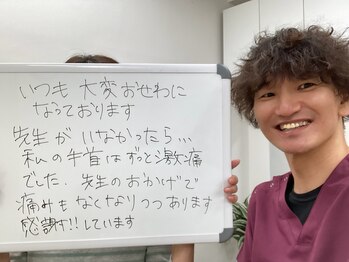 いつも大変おせわに
なっております
先生がいなかったら…
私の手首はずっと激痛
でした．先生のおかげで
痛みもなくなりつつあります
感謝!!しています